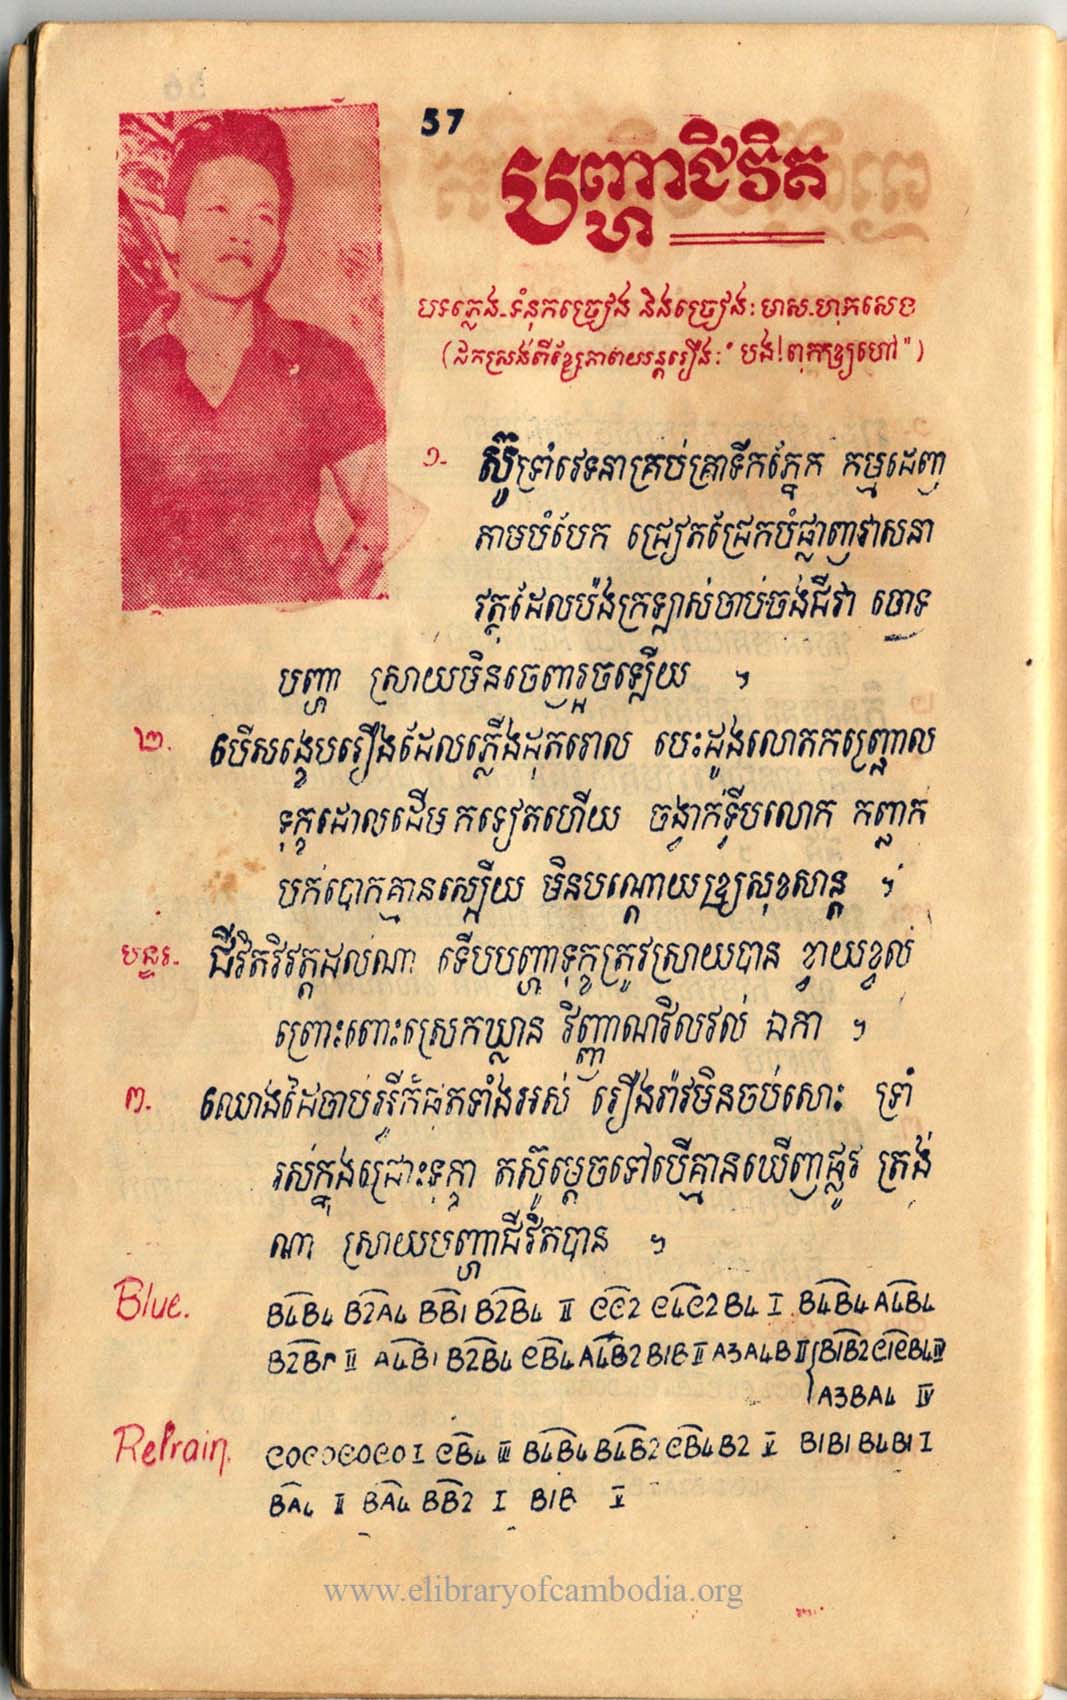 57
បញ្ហាជីវិត
បទភ្លេង-ទំនុកច្រៀង និងច្រៀង: មាស-ហុកសេង
(ដកស្រង់ពីខ្សែភាពយន្តរឿង: "បង!ពុកឲ្យហៅ")
១- ស៊ូទ្រាំវេទនាគ្រប់គ្រាទឹកភ្នែក កម្មដេញ
តាមបំបែក ជ្រៀតជ្រែកបំផ្លាញវាសនា
វត្ថុដែលប៉ងក្រឡាស់ចាប់ចងជីវា ចោទ
បញ្ហា ស្រាយមិនចេញរួចឡើយ ។
២. បើសង្ខេបរឿងដែលភ្លើងដុតរោល បេះដូងលោតកញ្ជ្រោល
ទុក្ខដោលដើមកទៀតហើយ ចង្វាក់ទ្វីបលោក កញ្ឆក់
បក់បោកគ្មានស្បើយ មិនបណ្តោយឲ្យសុខសាន្ត ។
បន្ទរ- ជីវិតវិវត្តដល់ណា ទើបបញ្ហាទុក្ខត្រូវស្រាយបាន ខ្វាយខ្វល់
ព្រោះពោះស្រេកឃ្លាន វិញ្ញាណវិលវល់ ឯកា ។
៣. ឈោងដៃចាប់អ្វីក៏ផុតទាំងអស់ រឿងរ៉ាវមិនចប់សោះ ទ្រាំ
រស់ក្នុងជ្រោះទុក្ខា តស៊ូម្តេចទៅបើគ្មានឃើញផ្លូវ ត្រង់
ណា ស្រាយបញ្ហាជីវិតបាន ។
Blue. B4B4 B2A4 BBI B2B4 II CC2 C4C2 B4 I B4B4 A4B4
B2Br II A4B1 B2B4 CB4 A4B2 B1B II A3A4B II B1B2C1CB4 IV
A3BA4 IV
Refrain. COCOCOCO I CB4 III B4B4 B4B2 CB4B2 V B1B1 B4B1 I
BA4 II BA4 BB2 I B1B V
www.elibraryofcambodia.org